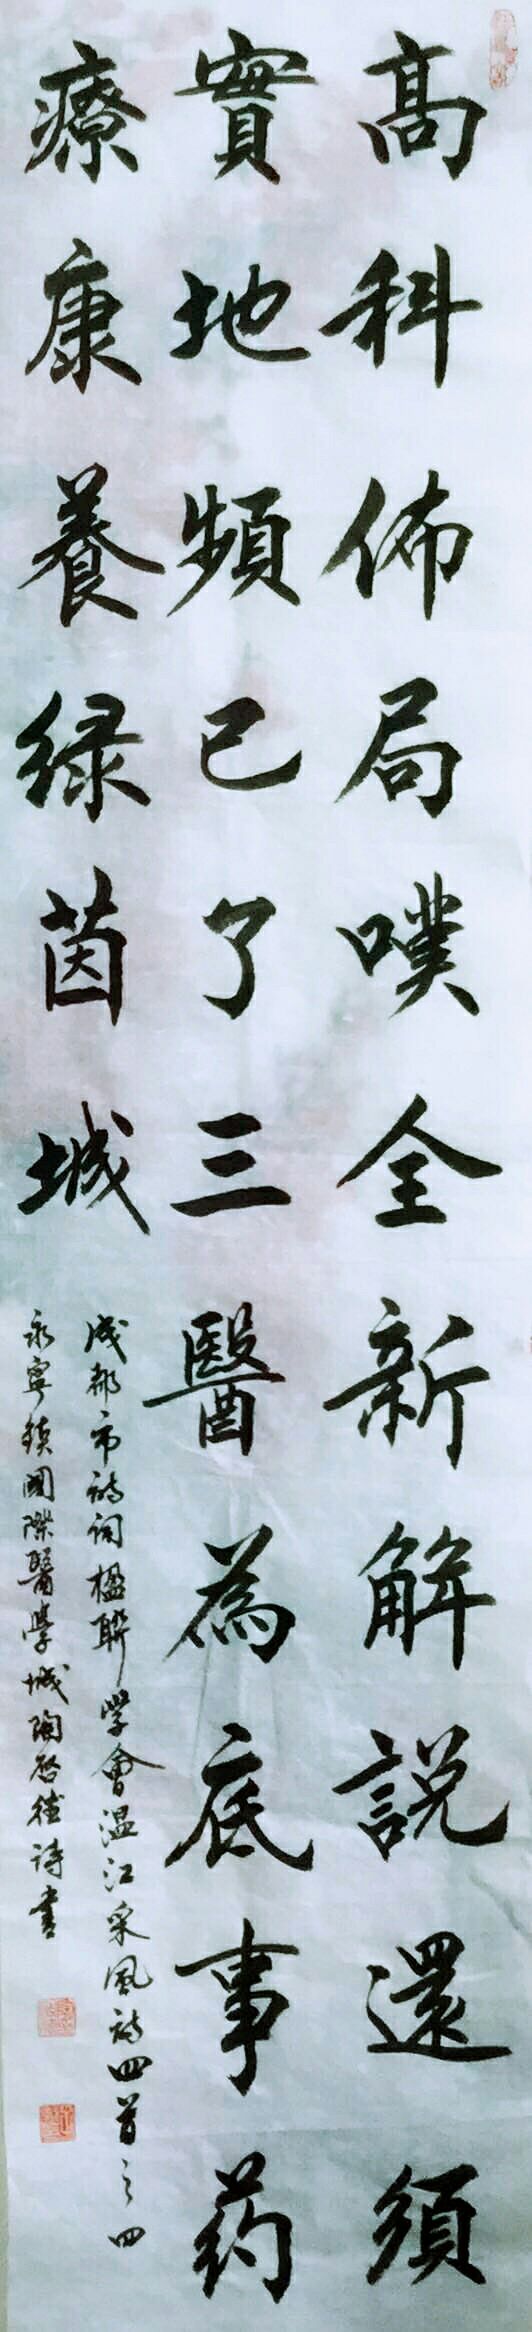 高科佈局噗全新解說還須
實地頻已了三醫為底事药
療康養绿茵城
成都市诗词楹聯学會温江采风诗四首之四
永寧鎮國際醫學城陶啓德诗書